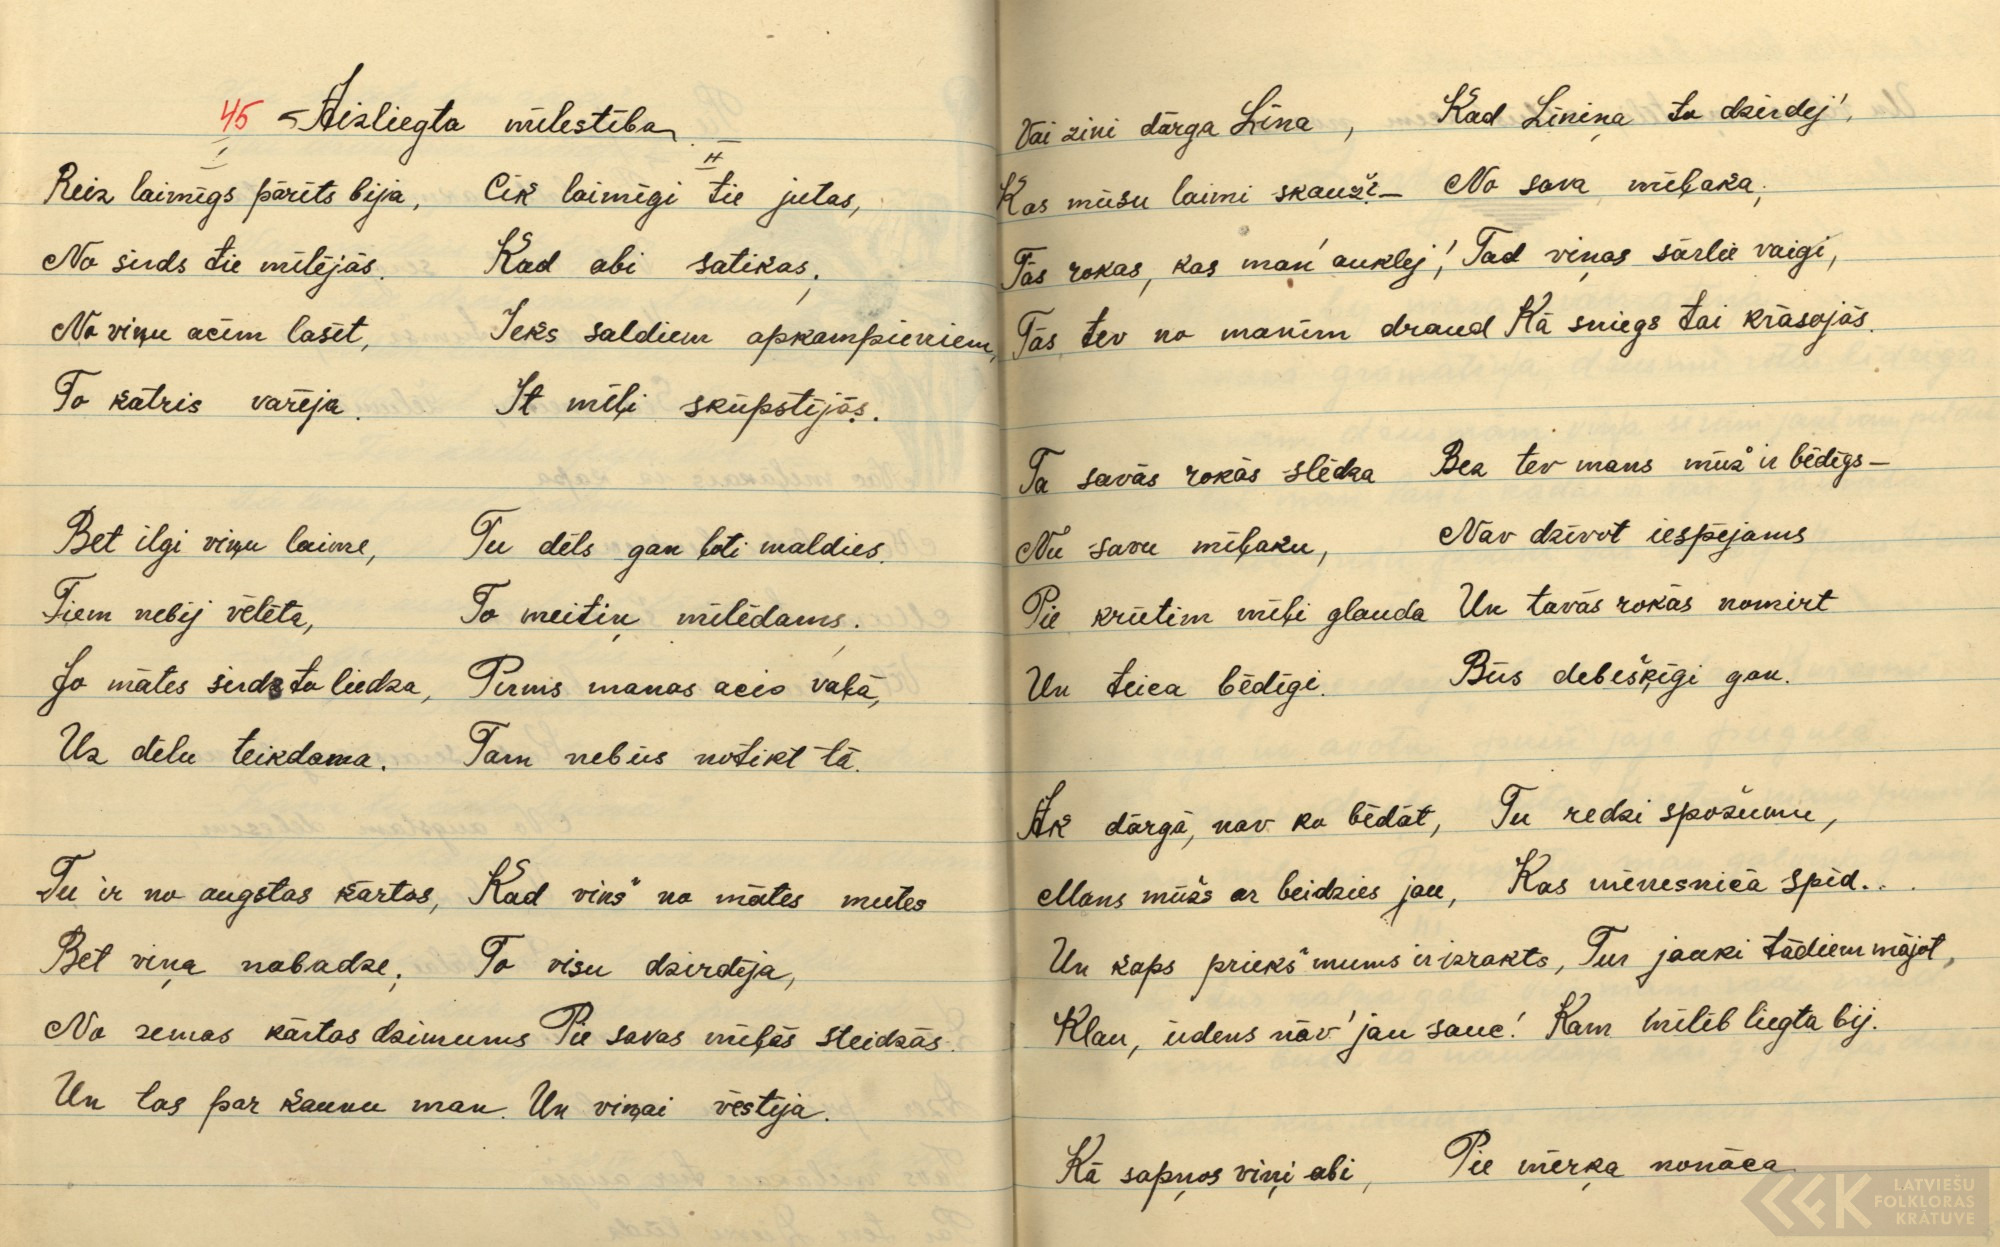 45 Aizliegta mīlestība
I
Reiz laimīgs pārīts bija,
No sirds tie mīlējās.
No viņu acīm lasīt,
To katris varēja.
II
Cik laimīgi tie jutas,
Kad abi satikas;
Ieks saldiem apkampieniem,
It mīļi skūpstījās.
Bet ilgi viņu laime,
Tiem nebij vēlēta,
Jo mātes sirds to liedza,
Uz dēlu teikdama.
Tu dēls gan ļoti maldies
To meitiņ mīlēdams,
Pirms manas acis vaļā,
Tam nebūs notikt tā.
Tu ir no augstas kārtas,
Bet viņa nabadze;
No zemas kārtas dzimums
Un tas par kaunu man.
Kad viņš no mātes mutes
To visu dzirdēja,
Pie savas mīļās steidzās
Un viņai vēstīja.
Vai zini dārga Līna,
Kas mūsu laimi skauž? –
Tās rokas, kas man' auklēj',
Tās tev no manīm draud
Kad Līniņa to dzirdēj',
No sava mīļaka;
Tad viņas sārtie vaigi,
Kā sniegs tai krāsojās.
Ta savās rokās slēdza
Nu savu mīļaku,
Pie krūtīm mīļi glauda
Un teica bēdīgi.
Bez tev mans mūž' ir bēdīgs –
Nav dzīvot iespējams
Un tavās rokās nomirt
Būs debešķīgi gan.
Ak dārgā, nav ko bēdāt,
Mans mūžs ar beidzies jau,
Un kaps priekš mums ir izrakts,
Klau, ūdens nāv' jau sauc!
Tu redzi spožumu,
Kas mēnesnīcā spīd...
Tur jauki tādiem mājot,
Kam mīlēt liegta bij.
Kā sapņos viņi abi,
Pie mērķa nonāca
LATVIEŠU
FOLKLORAS
KRĀTUVE